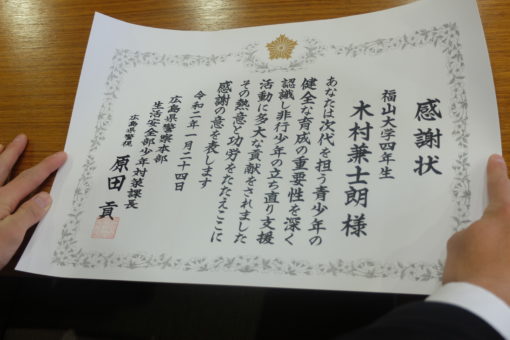 感謝状
福山大学四年生
木村兼士朗 様
あなたは次代を担う青少年の
健全な育成の重要性を深く
認識し非行少年の立ち直り支援
活動に多大な貢献をされました
その熱意と功労をたたえここに
感謝の意を表します
令和二年一月二十四日
広島県警察本部
生活安全部少年対策課長
広島県警視 原田 貢